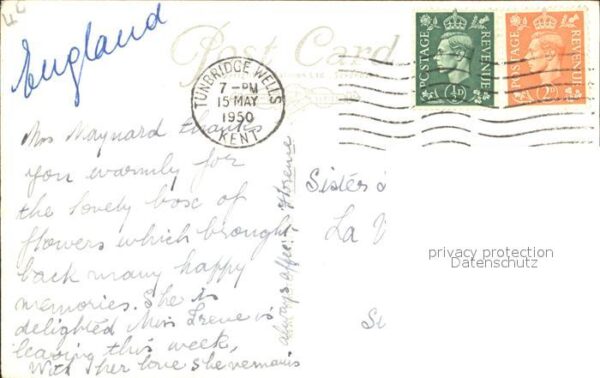 England
Post Card
POSTAGE REVENUE
½D
POSTAGE REVENUE
2D
TUNBRIDGE WELLS
7 - PM
15 MAY
1950
KENT
Mrs Maynard thanks
you warmly for
the lovely box of
flowers which brought
back many happy
memories. She is
delighted Miss Irene is
leaving this week,
With her love she remains
always affec.
Florence
Sisters
La V
privacy protection
Datenschutz